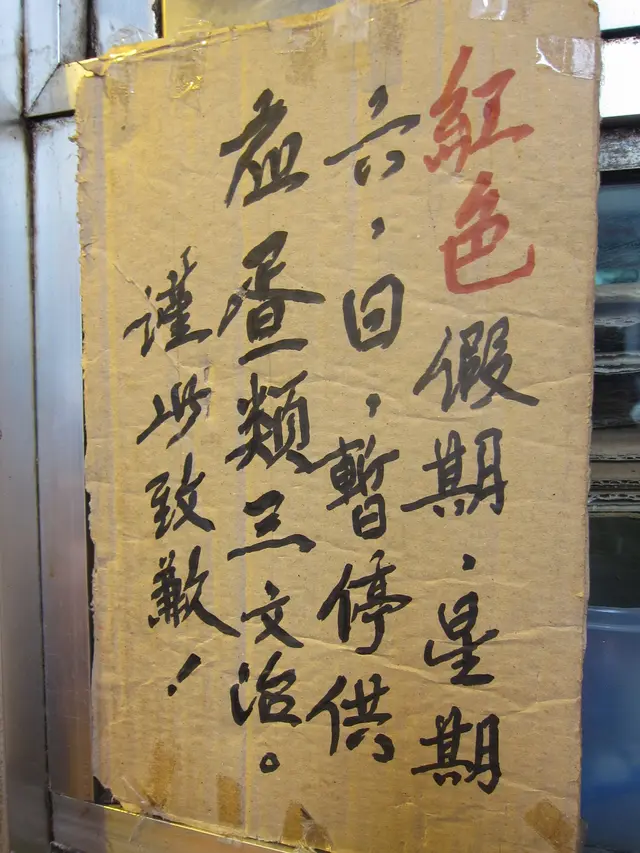 紅色假期，星期
六，日，暫停供
应疍類三文治。
謹此致歉！